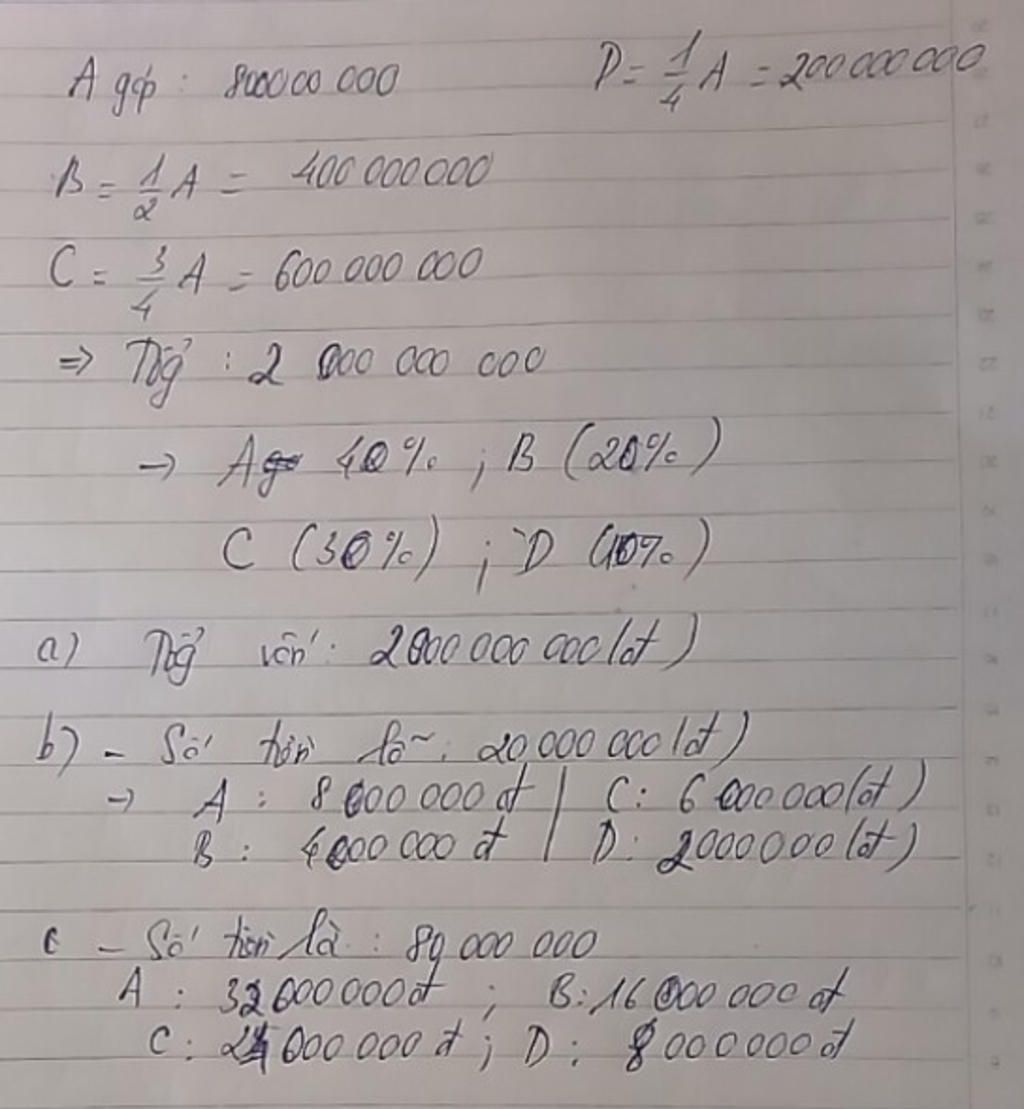 A góp : 800000 000 D = 1/4 A = 200 000 000
B = 1/2 A = 400 000 000
C = 3/4 A = 600 000 000
=> Tổg : 2 000 000 000
-> A 40% ; B (20%)
C (30%) ; D (10%)
a) Tổg vốn : 2000 000 000 (đ)
b) - Số tiền lỗ : 20 000 000 (đ)
-> A : 8 000 000 đ | C : 6 000 000 (đ)
B : 4000 000 đ | D : 2000000 (đ)
c - Số tiền là : 80 000 000
A : 32 000 000 đ ; B : 16 000 000 đ
C : 24 000 000 đ ; D : 8 000 000 đ